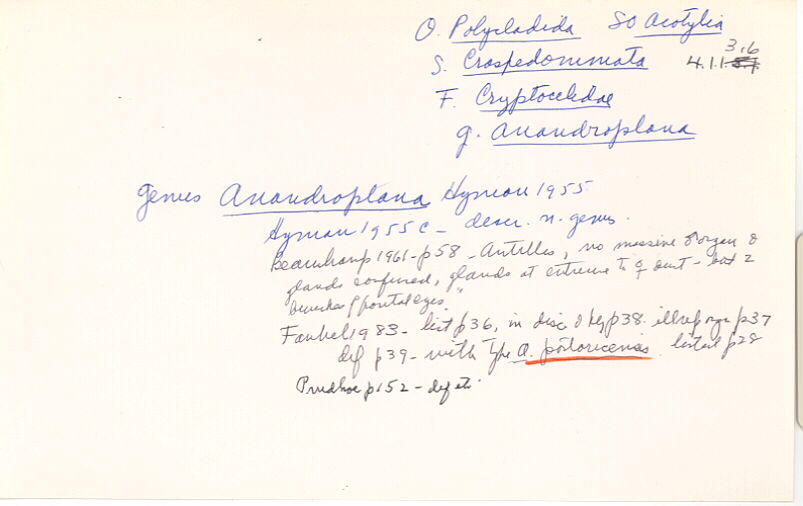 O. Polycladida SO Acotylia
S. Craspedommata 4.1.1 3.6
F. Cryptocelidae
g. Anandroplana
Genus Anandroplana Hyman 1955
Hyman 1955 c - descr. n. genus.
Beauchamp 1961 - p58 - Antilles, no massive ♂ organ ♂
glands confined, glands at entrance to ♀ duct - but 2
bunches frontal eyes"
Faubel 1983 - list p36, in disc & key p38. illus p37
def p39 - with type A. portoricensis. listed p28
Prudhoe p152 - def etc.